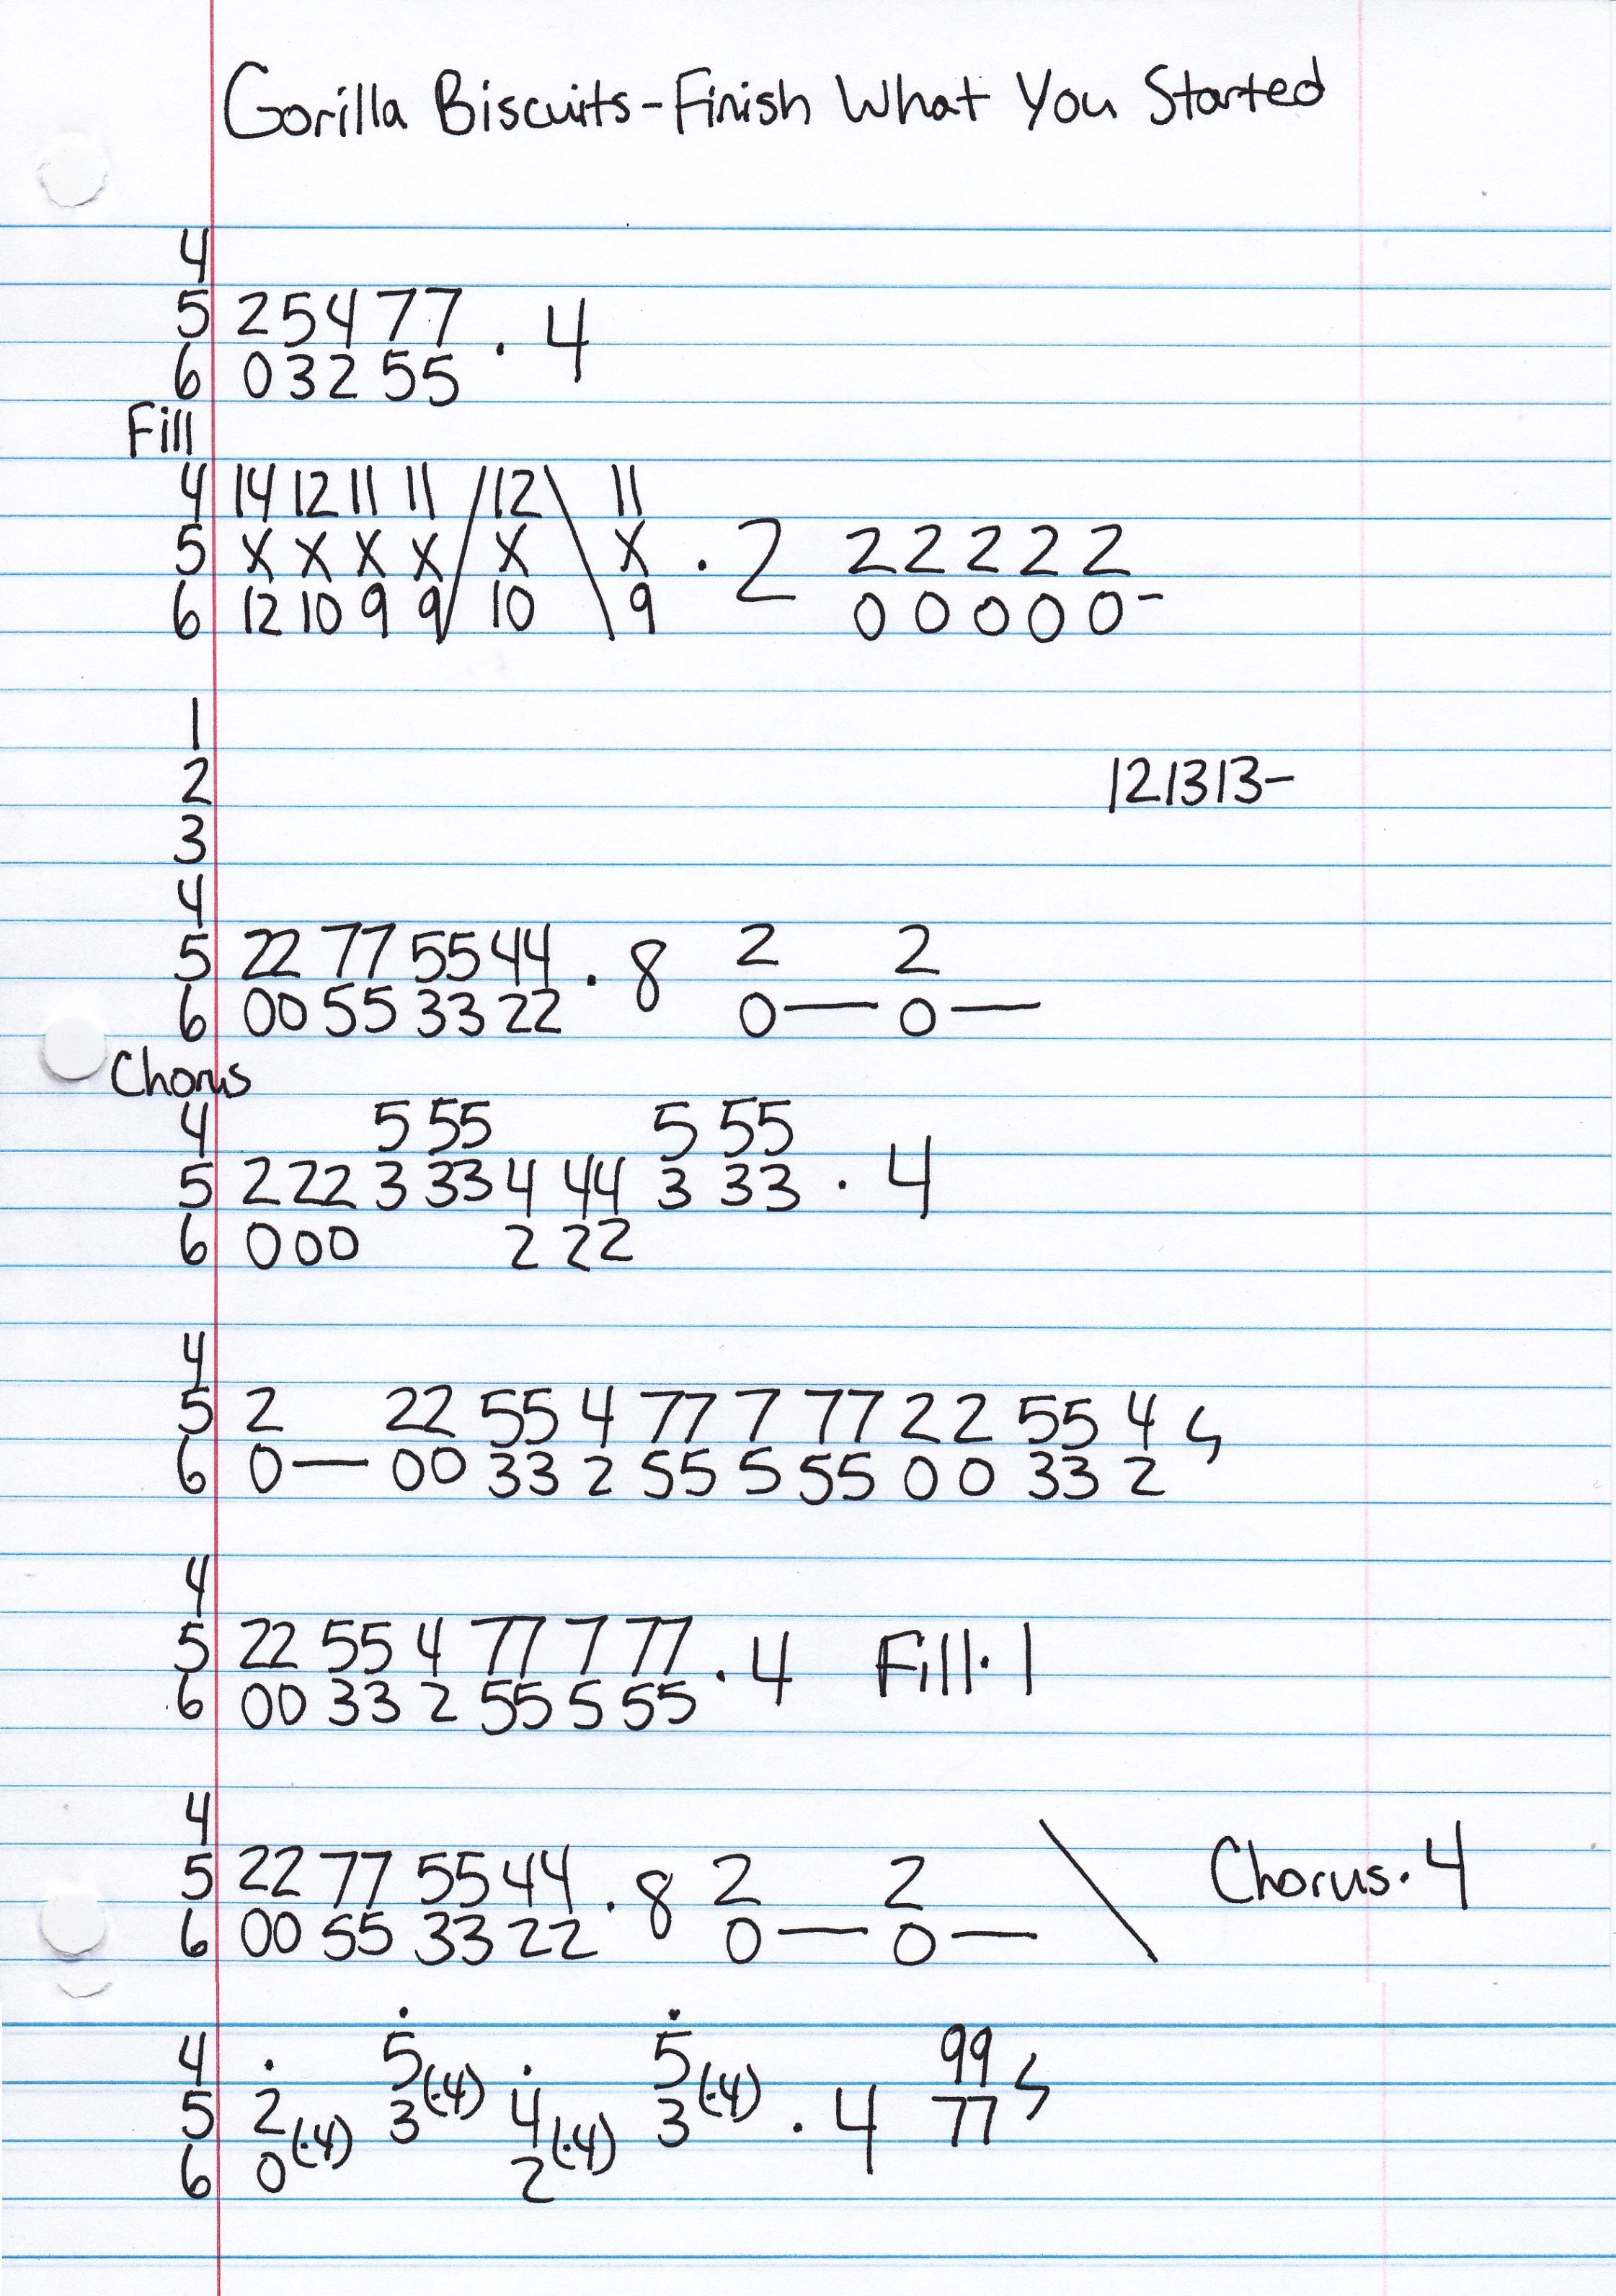 Gorilla Biscuits-Finish What You Started
4
5 2 5 4 7 7 . 4
6 0 3 2 5 5
Fill
4 14 12 11 11 / 12 \ 11
5 X X X X / X \ X . 2 2 2 2 2 2
6 12 10 9 9 / 10 \ 9 0 0 0 0 0-
1
2 12 13 13-
3
4
5 22 77 55 44 . 8 2 2
6 00 55 33 22 0— 0—
Chorus
4 5 55 5 55
5 2 22 3 33 4 44 3 33 . 4
6 0 00 2 22
4
5 2 22 55 4 77 7 77 2 2 55 4
6 0— 00 33 2 55 5 55 0 0 33 2
4
5 22 55 4 77 7 77 . 4 Fill·1
6 00 33 2 55 5 55
4
5 22 77 55 44 . 8 2 2 \ Chorus·4
6 00 55 33 22 0— 0—
4 5(·4) 5(·4) 99
5 2 3 4 3 . 4 77
6 0(·4) 2(·4)